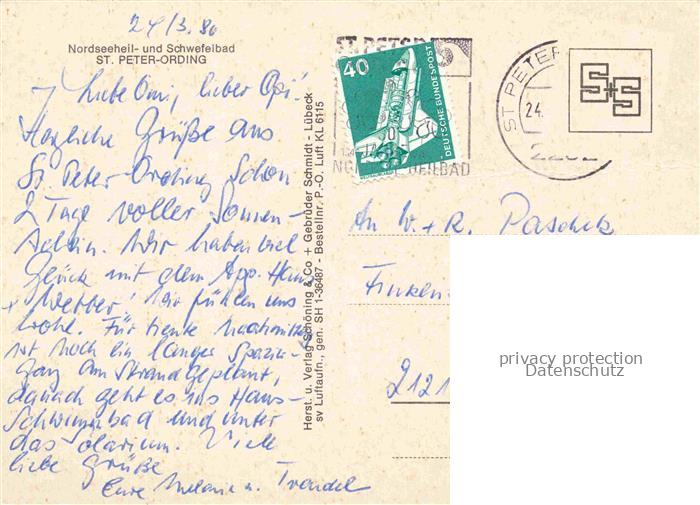 24/3.80
Nordseeheil- und Schwefelbad
ST. PETER-ORDING
Liebe Omi, lieber Opi!
Herzliche Grüße aus
St. Peter-Ording schon
2 Tage voller Sonnen-
schein. Wir haben viel
Glück mit dem App. Haus
+ Wetter! Wir fühlen uns
wohl. Für heute Nachmittag
ist noch ein langer Spazier-
gang am Strand geplant,
danach geht es ins Haus-
Schwimmbad und unter
das Solarium. Viele
liebe Grüße
Eure Melanie u.
Herst. u. Verlag Schöning & Co + Gebrüder Schmidt - Lübeck
sv Luftaufn., gen. SH 1-36487 - Bestellnr. P.-O. Luft KL 6115
ST. PETER
40
DEUTSCHE BUNDESPOST
HEILBAD
ST PETER
24.
2252
S+S
An W. + R. Paschek
Finken
2121
privacy protection
Datenschutz